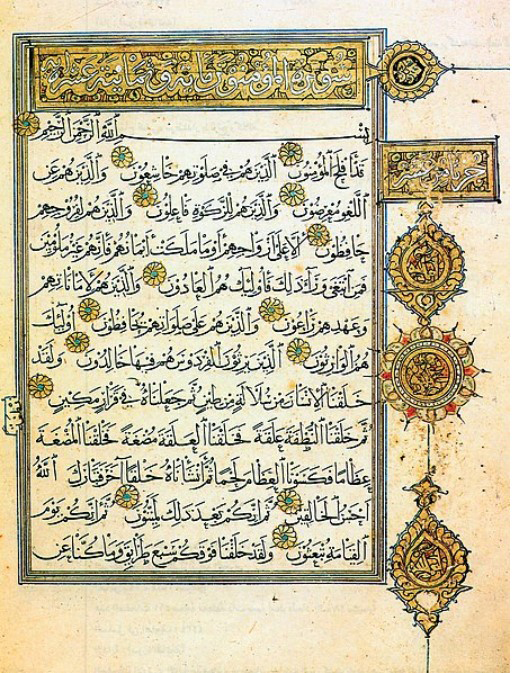 سورة المؤمنون مائة وثمانية عشرة
بسم الله الرحمن الرحيم
قد افلح المؤمنون الذين هم في صلوتهم خاشعون والذين هم عن
اللغو معرضون والذين هم للزكوة فاعلون والذين هم لفروجهم
حافظون الا على ازواجهم او ما ملكت ايمانهم فانهم غير ملومين
فمن ابتغى وراء ذلك فاولئك هم العادون والذين هم لاماناتهم
وعهدهم راعون والذين هم على صلواتهم يحافظون اولئك
هم الوارثون الذين يرثون الفردوس هم فيها خالدون ولقد
خلقنا الانسان من سلالة من طين ثم جعلناه في قرار مكين
ثم خلقنا النطفة علقة فخلقنا العلقة مضغة فخلقنا المضغة
عظاما فكسونا العظام لحما ثم انشاناه خلقا اخر فتبارك الله
احسن الخالقين ثم انكم بعد ذلك لميتون ثم انكم يوم
القيامة تبعثون ولقد خلقنا فوقكم سبع طرايق وما كنا عن
جزء ثامن عشر